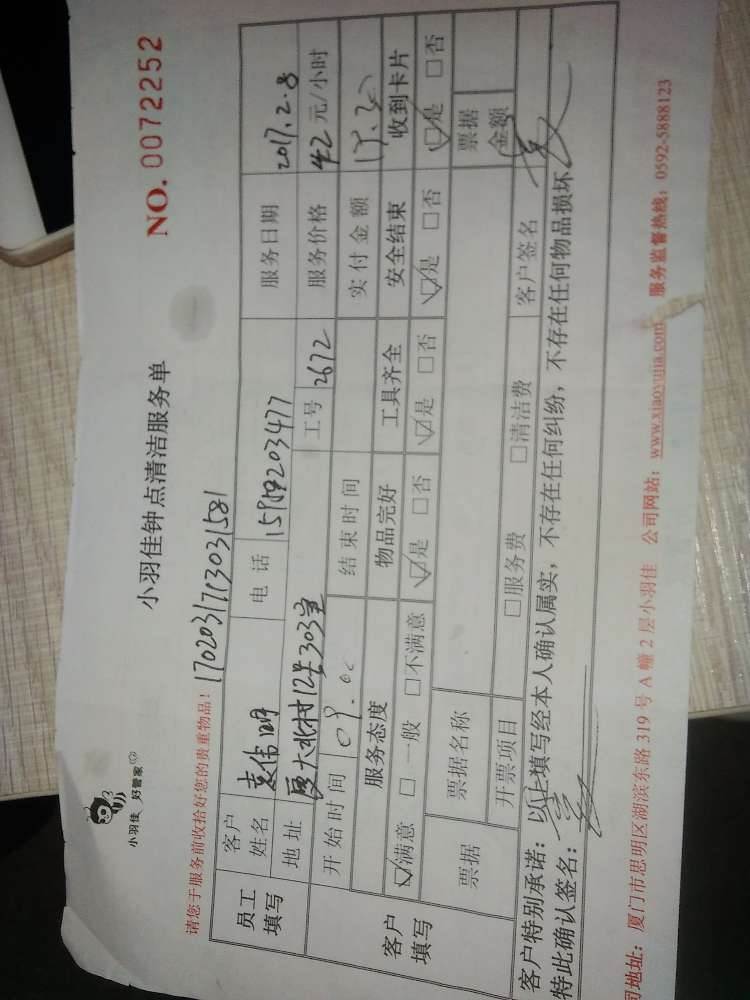 小羽佳 好管家
小羽佳钟点清洁服务单
NO. 0072252
请您于服务前收拾好您的贵重物品!
1702031713031581
员工填写
客户姓名 袁伟明 电话 服务日期 2017.2.8
地址 厦大北村12号303室 工号 2672 服务价格 42元/小时
开始时间 09.00 结束时间 实付金额
客户填写
服务态度 物品完好 工具齐全 安全结束 收到卡片
☑满意 □一般 □不满意 ☑是 □否 ☑是 □否 ☑是 □否 ☑是 □否
票据 票据名称 票据金额
开票项目 □服务费 □清洁费 客户签名
客户特别承诺:以上填写经本人确认属实,不存在任何纠纷,不存在任何物品损坏
特此确认签名:
司地址:厦门市思明区湖滨东路319号A幢2层小羽佳 公司网站:www.xiaoyujia.com 服务监督热线:0592-5888123